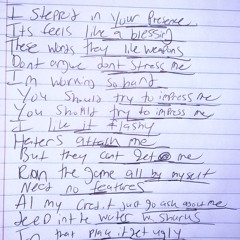 I stepped in your presence
Its feels like a blessing
These words they like weapons
Dont argue dont stress me
I'm working so hard
You should try to impress me
You should try to impress me
I like it flashy
Haters attack me
But they cant get me
Run the game all by myself
Need no features
All my cred. it just go ask about me
deep in the water w sharks
In that play it get ugly